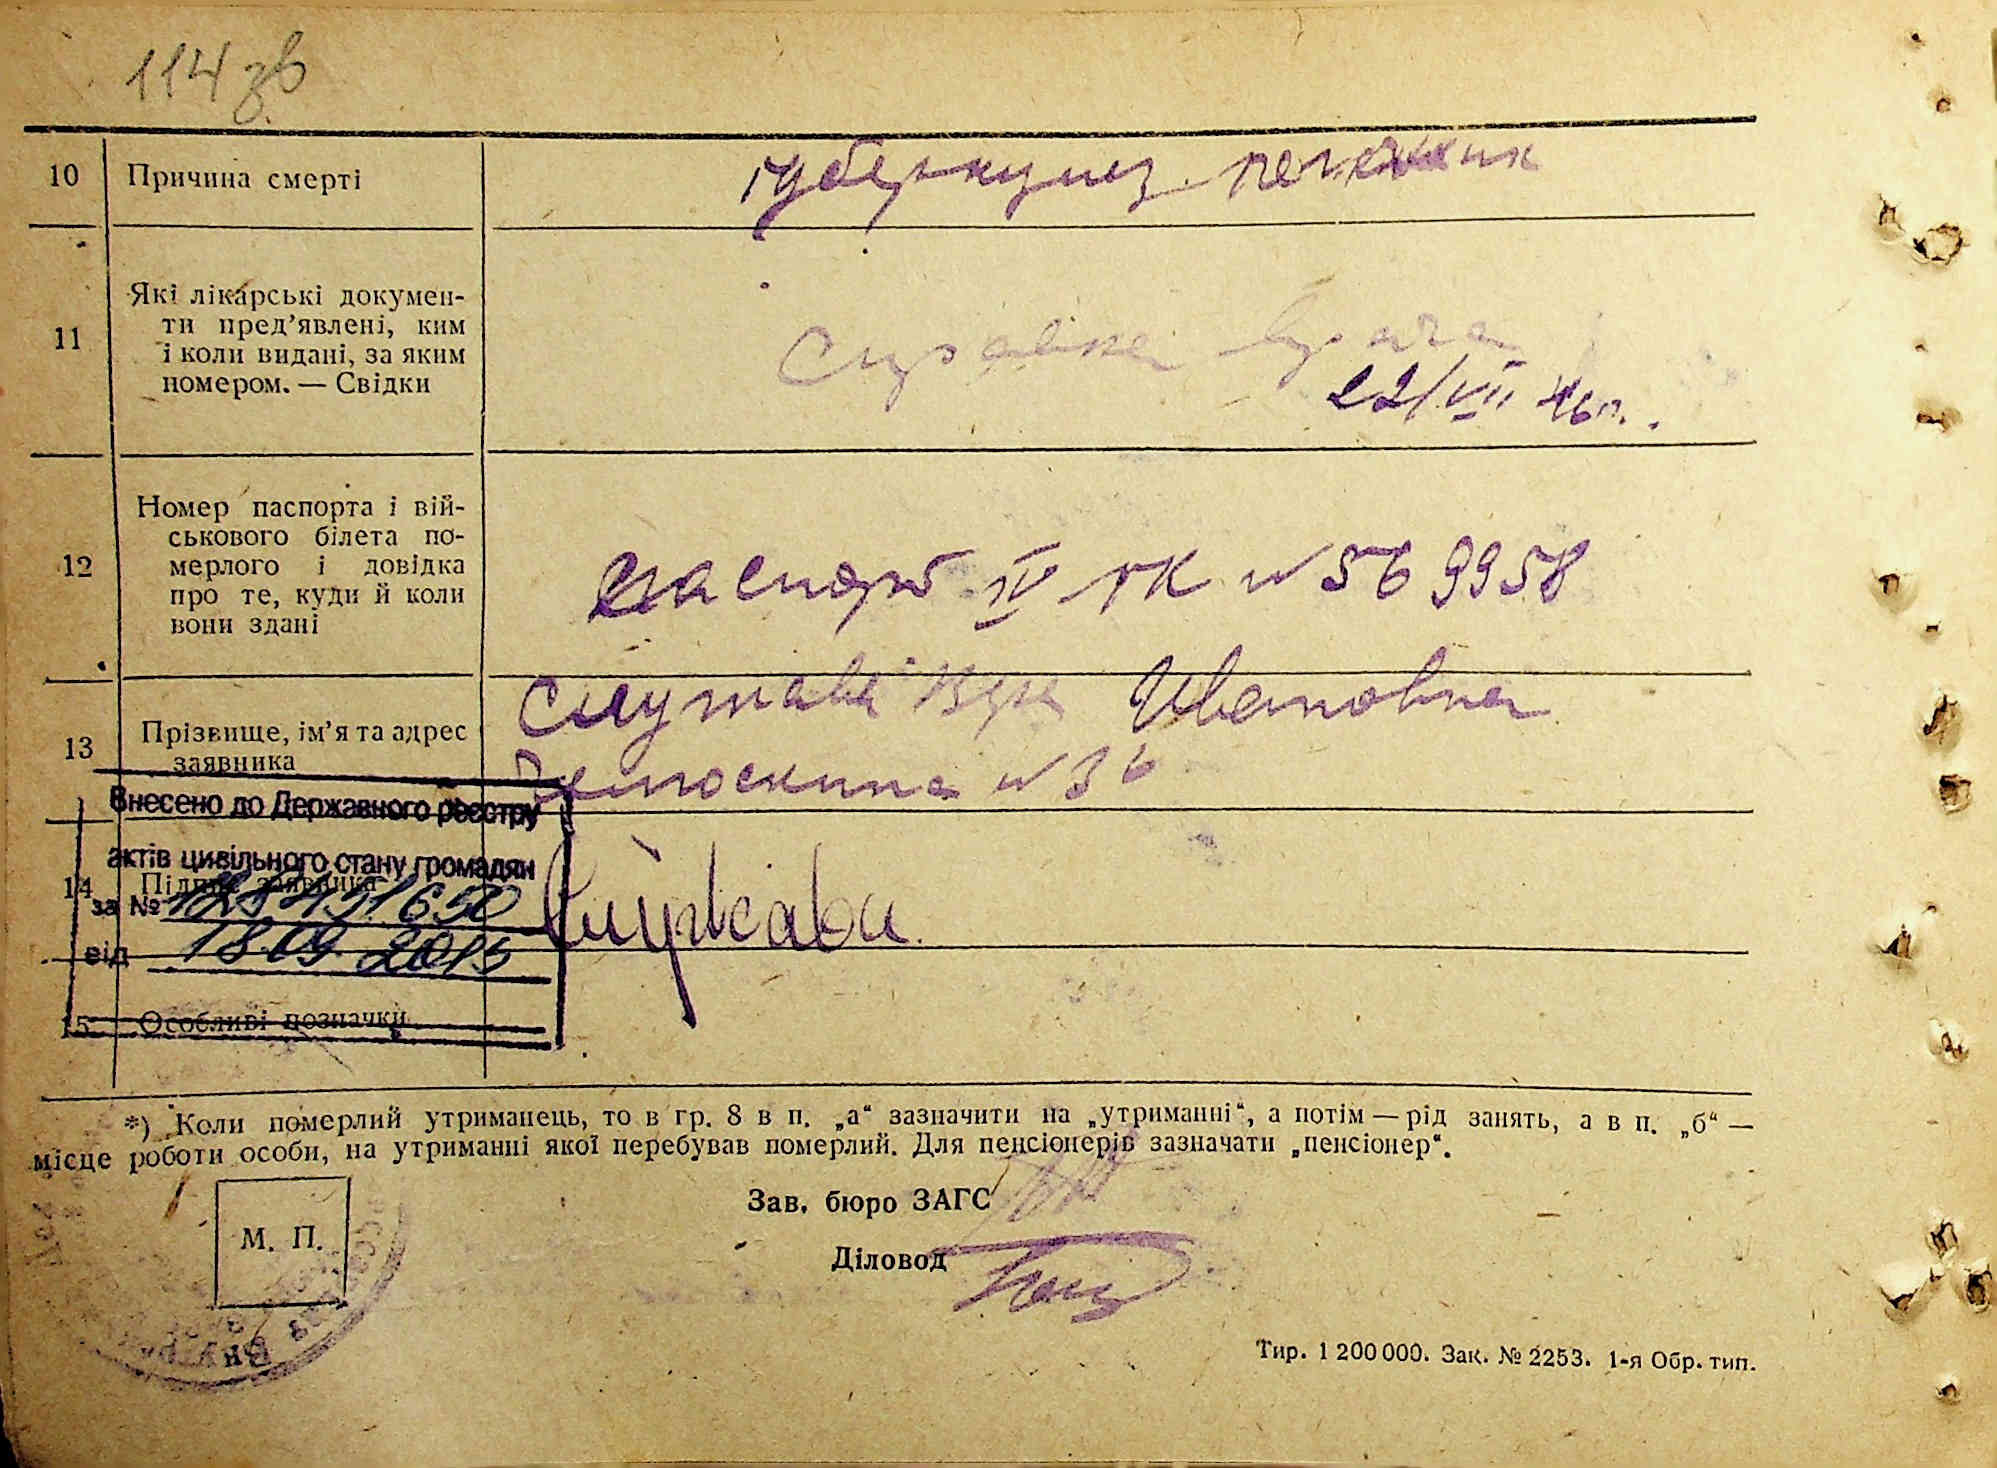 114 зв
10 Причина смерті
туберкулез легких
11 Які лікарські докумен-
ти пред’явлені, ким
і коли видані, за яким
номером. — Свідки
Справка врача
22/VII 46г.
12 Номер паспорта і вій-
ськового білета по-
мерлого і довідка
про те, куди й коли
вони здані
паспорт IV ГК N 569958
13 Прізвище, ім’я та адрес
заявника
Ивановна
N 36
Внесено до Державного реєстру
актів цивільного стану громадян
14 Підпис заявника
за №
від 18 09 2015
15 Особливі позначки
*) Коли померлий утриманець, то в гр. 8 в п. „а“ зазначити на „утриманні“, а потім — рід занять, а в п. „б“ —
місце роботи особи, на утриманні якої перебував померлий. Для пенсіонерів зазначати „пенсіонер“.
Зав. бюро ЗАГС
М. П.
Діловод
Тир. 1 200 000. Зак. № 2253. 1-я Обр. тип.